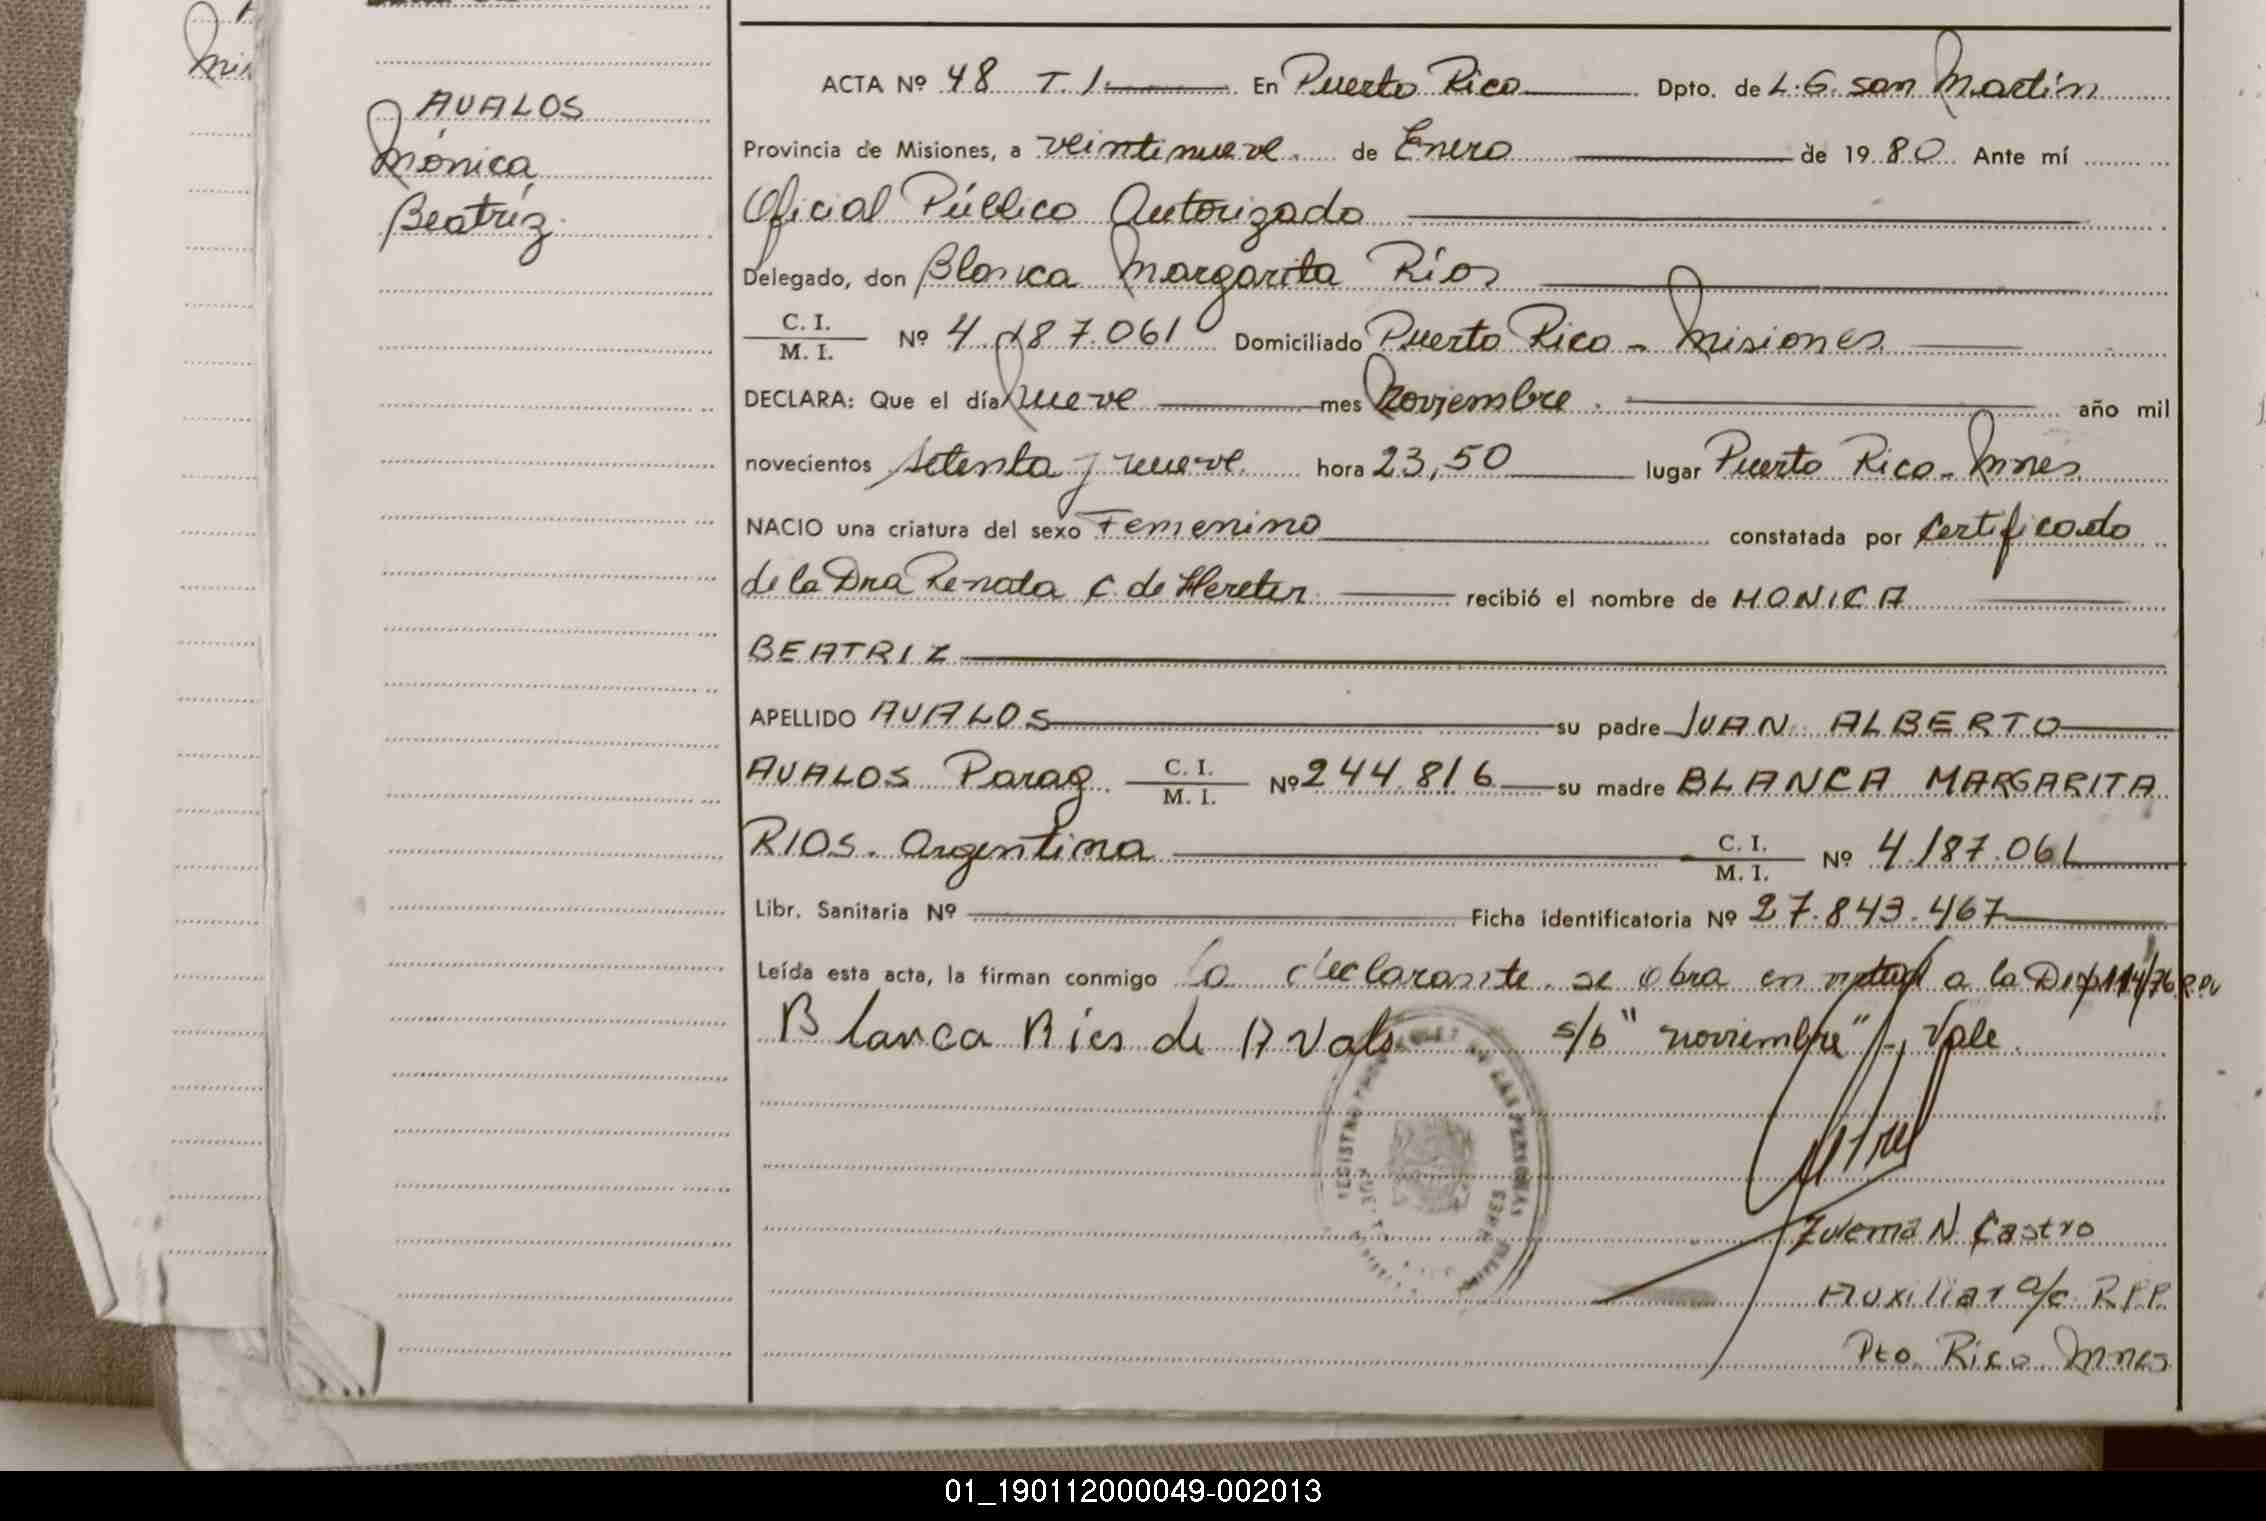 AVALOS
Mónica
Beatríz
ACTA Nº 48 T. 1 En Puerto Rico Dpto. de L.G. san Martín
Provincia de Misiones, a veintinueve de Enero de 1980 Ante mí
Oficial Público Autorizado
Delegado, don Blanca Margarita Ríos
C. I.
M. I. Nº 4.187.061 Domiciliado Puerto Rico - Misiones
DECLARA: Que el día nueve mes noviembre . año mil
novecientos setenta y nueve hora 23,50 lugar Puerto Rico - Mnes
NACIO una criatura del sexo Femenino constatada por Certificado
de la Dra Renata C. de Hereter recibió el nombre de MONICA
BEATRIZ
APELLIDO AVALOS su padre JUAN ALBERTO
AVALOS Parag. C. I.
M. I. Nº 244.816 su madre BLANCA MARGARITA
RIOS. Argentina C. I.
M. I. Nº 4.187.061
Libr. Sanitaria Nº Ficha identificatoria Nº 27.843.467
Leída esta acta, la firman conmigo la declarante. se obra en a la 114/76
Blanca Rios de Avalo s/b "noviembre" Vale.
REGISTRO DE LAS PERSONAS
Zulema N Castro
Auxiliar a/c R.P.P.
Pto. Rico. Mnes
01_190112000049-002013